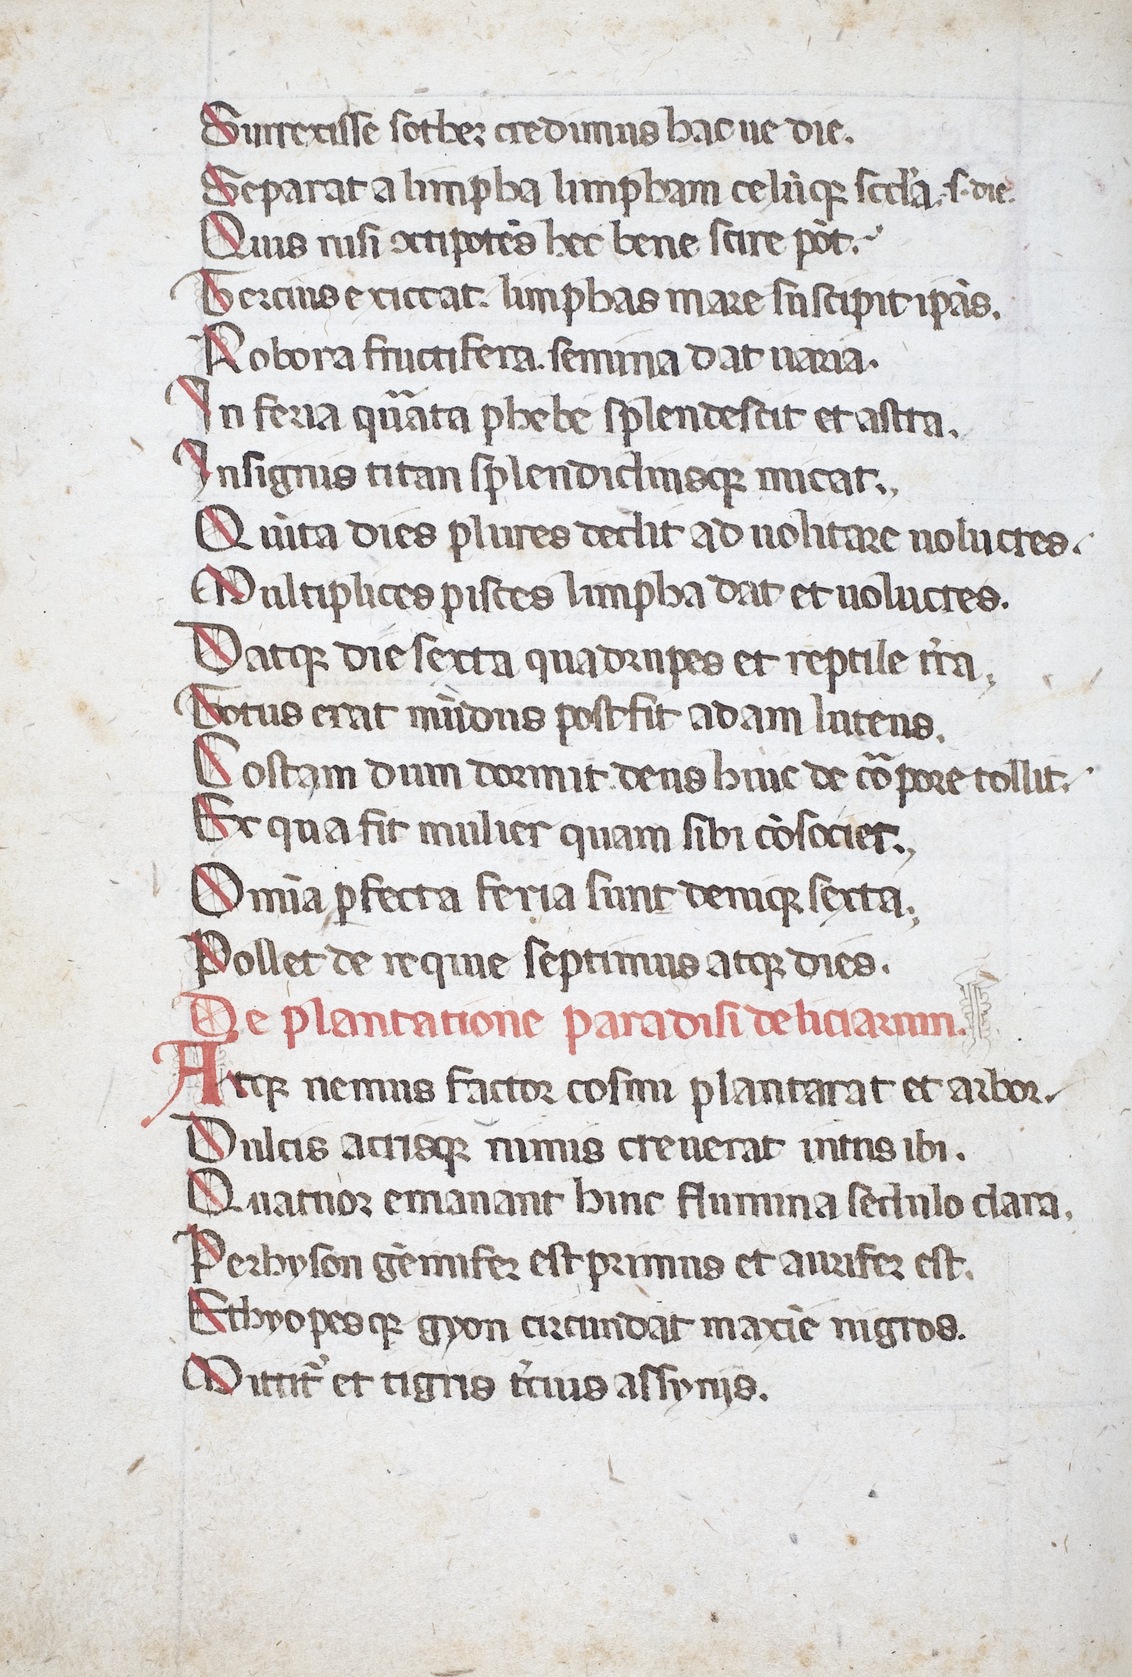 Surrexisse sother credimus hac ue die.
Separat a limpha limpham celiq̄ꝫ scd̓a. .s. die.
Quis nisi cūctipotēs hec bene scire pōt.
Tercius exiccat. limphas mare suscipit ip̄as.
Robora fructifera. semina dat uaria.
In feria quāta phebe splendescit et astra.
Insignis titan splendidiusqꝫ micat.
Quīta dies plures dedit ad uolitare uolucres.
Multiplices pisces limpha dat et uolucres.
Datqꝫ die sexta quadrupes et reptile t̄ra,
Totus erat mūdus post fit adam luteus.
Costam dum dormit deus huic de cōrpore tollit.
Ex qua fit mulier quam sibi cōsociet.
Omīa ꝑfecta feria sunt deniqꝫ sexta,
Pollet de requie septimus atqꝫ dies.
De plantatione paradisi deliciarum.
Atqꝫ nemus factor cosmi plantarat et arbor.
Dulcis acrisqꝫ nimis creuerat intus ibi.
Quatuor emanant hinc flumina sedulo clara,
Perhyson gēmifer est primus et aurifer est.
Ethyopesqꝫ gyon circumdat maxīe nigros.
Mittit᷑ et tigris t̓cius assyrijs.